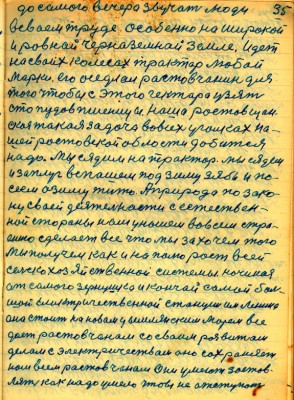 до самого вечера звучат люди 35
в своем труде. особенно на широкой
и ровной черназемной земле, идет
на своих колесах трактор любой
марки. его оседлал растовчанин для
того чтобы с этого гектара взят
сто пудов пшеницы. наша ростовщи
ская такая задача во всех уголках на
шей ростовской области добится
надо. Мы сядим на трактор. мы сядем
и за плуг вспашем под зиму зябь и по
сеем озиму жито. А природа по зако
ну своей деятельности с естествен
ной стороны
она сделает все что мы захочем того
Мы получем как и на
сельскохозяйственной системы начиная
от самого зернушка и кончай самой бол
шой електрической станцыи им Ленина
она стоит на новом цымлянским Море все
дает растовчанам со своим розвитам
делам с электричеством оно сохраняет
нам всем растовчанам Они умеют застав
лять как надо